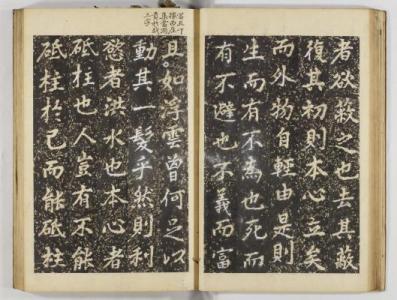 者欲蔽之也去其蔽
復其初則本心立矣
而外物自輕由是則
生而有不為也死而
有不避也不義而富
且如浮雲曾何足以
動其一髮乎然則利
慾者洪水也本心者
砥柱也人豈有不能
砥柱於已而能砥柱